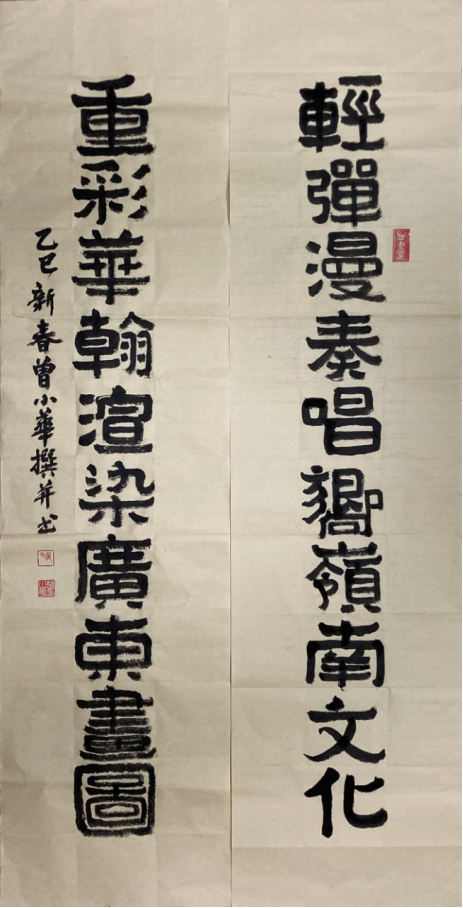 輕彈漫奏唱響嶺南文化
重彩華翰渲染廣東畫圖
乙巳新春曾小華撰并书